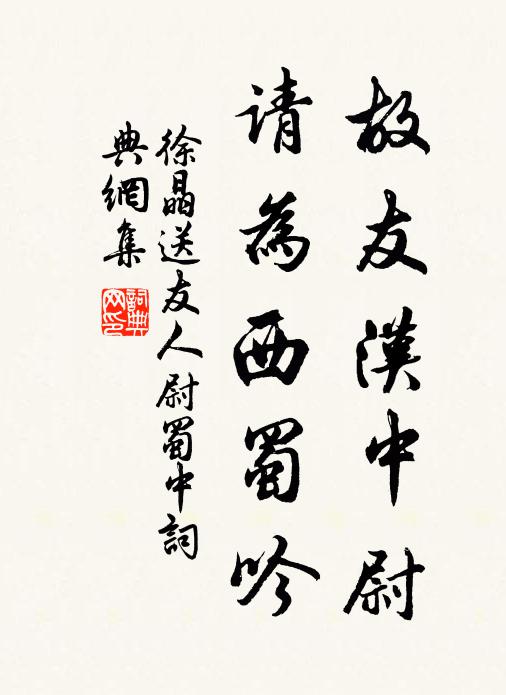 故友漢中尉
請為西蜀吟
徐晶送友人尉蜀中詞
典網集
詞典
网印